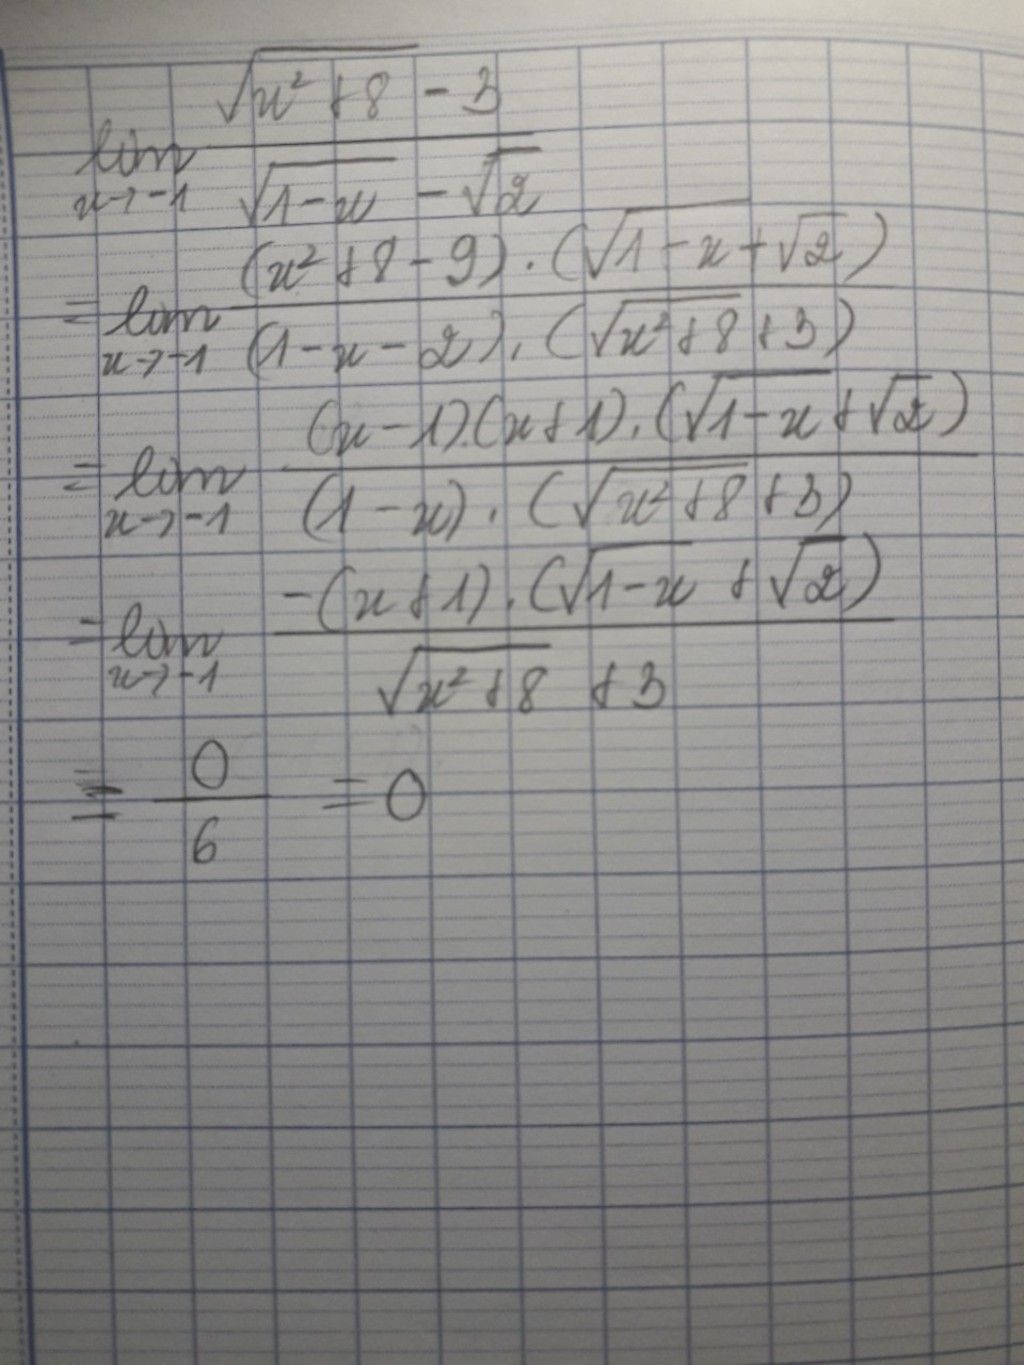 lim x→-1 (√(x² + 8) - 3) / (√(1 - x) - √2)
= lim x→-1 ((x² + 8 - 9) . (√(1 - x) + √2)) / ((1 - x - 2) . (√(x² + 8) + 3))
= lim x→-1 ((x - 1).(x + 1) . (√(1 - x) + √2)) / ((1 - x) . (√(x² + 8) + 3))
= lim x→-1 (-(x + 1) . (√(1 - x) + √2)) / (√(x² + 8) + 3)
= 0/6 = 0